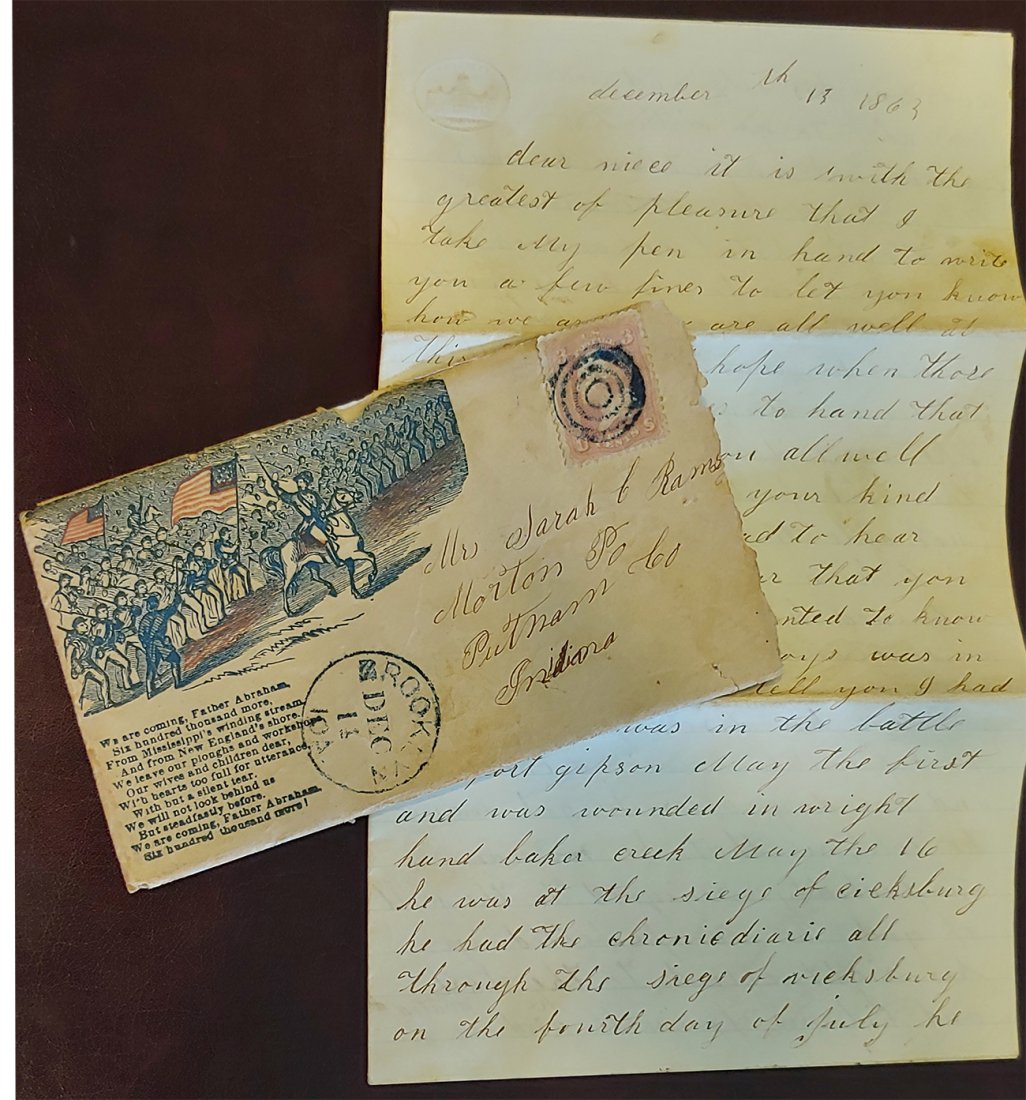 december 13th 1863
dear niece it is with the
greatest of pleasure that I
take My pen in hand to write
you a few lines to let you know
how we are all well at
this hope when those
to hand that
you all well
your kind
to hear
that you
to know
was in
tell you I had
was in the battle
port gipson May the first
and was wounded in wright
hand baker creek May the 16
he was at the siege of vicksburg
he had the chronicdiarie all
through the siege of vicksburg
on the fourth day of july he
3 3
CENTS
Mrs Sarah C Rams
Morton Po
Putnam Co
Indiana
BROOKLYN
DEC
IOA
We are coming, Father Abraham,
Six hundred thousand more,
From Mississippi's winding stream,
And from New England's shore.
We leave our ploughs and workshop
Our wives and children dear,
With hearts too full for utterance,
With but a silent tear,
We will not look behind us
But steadfastly before.
We are coming, Father Abraham,
Six hundred thousand more!